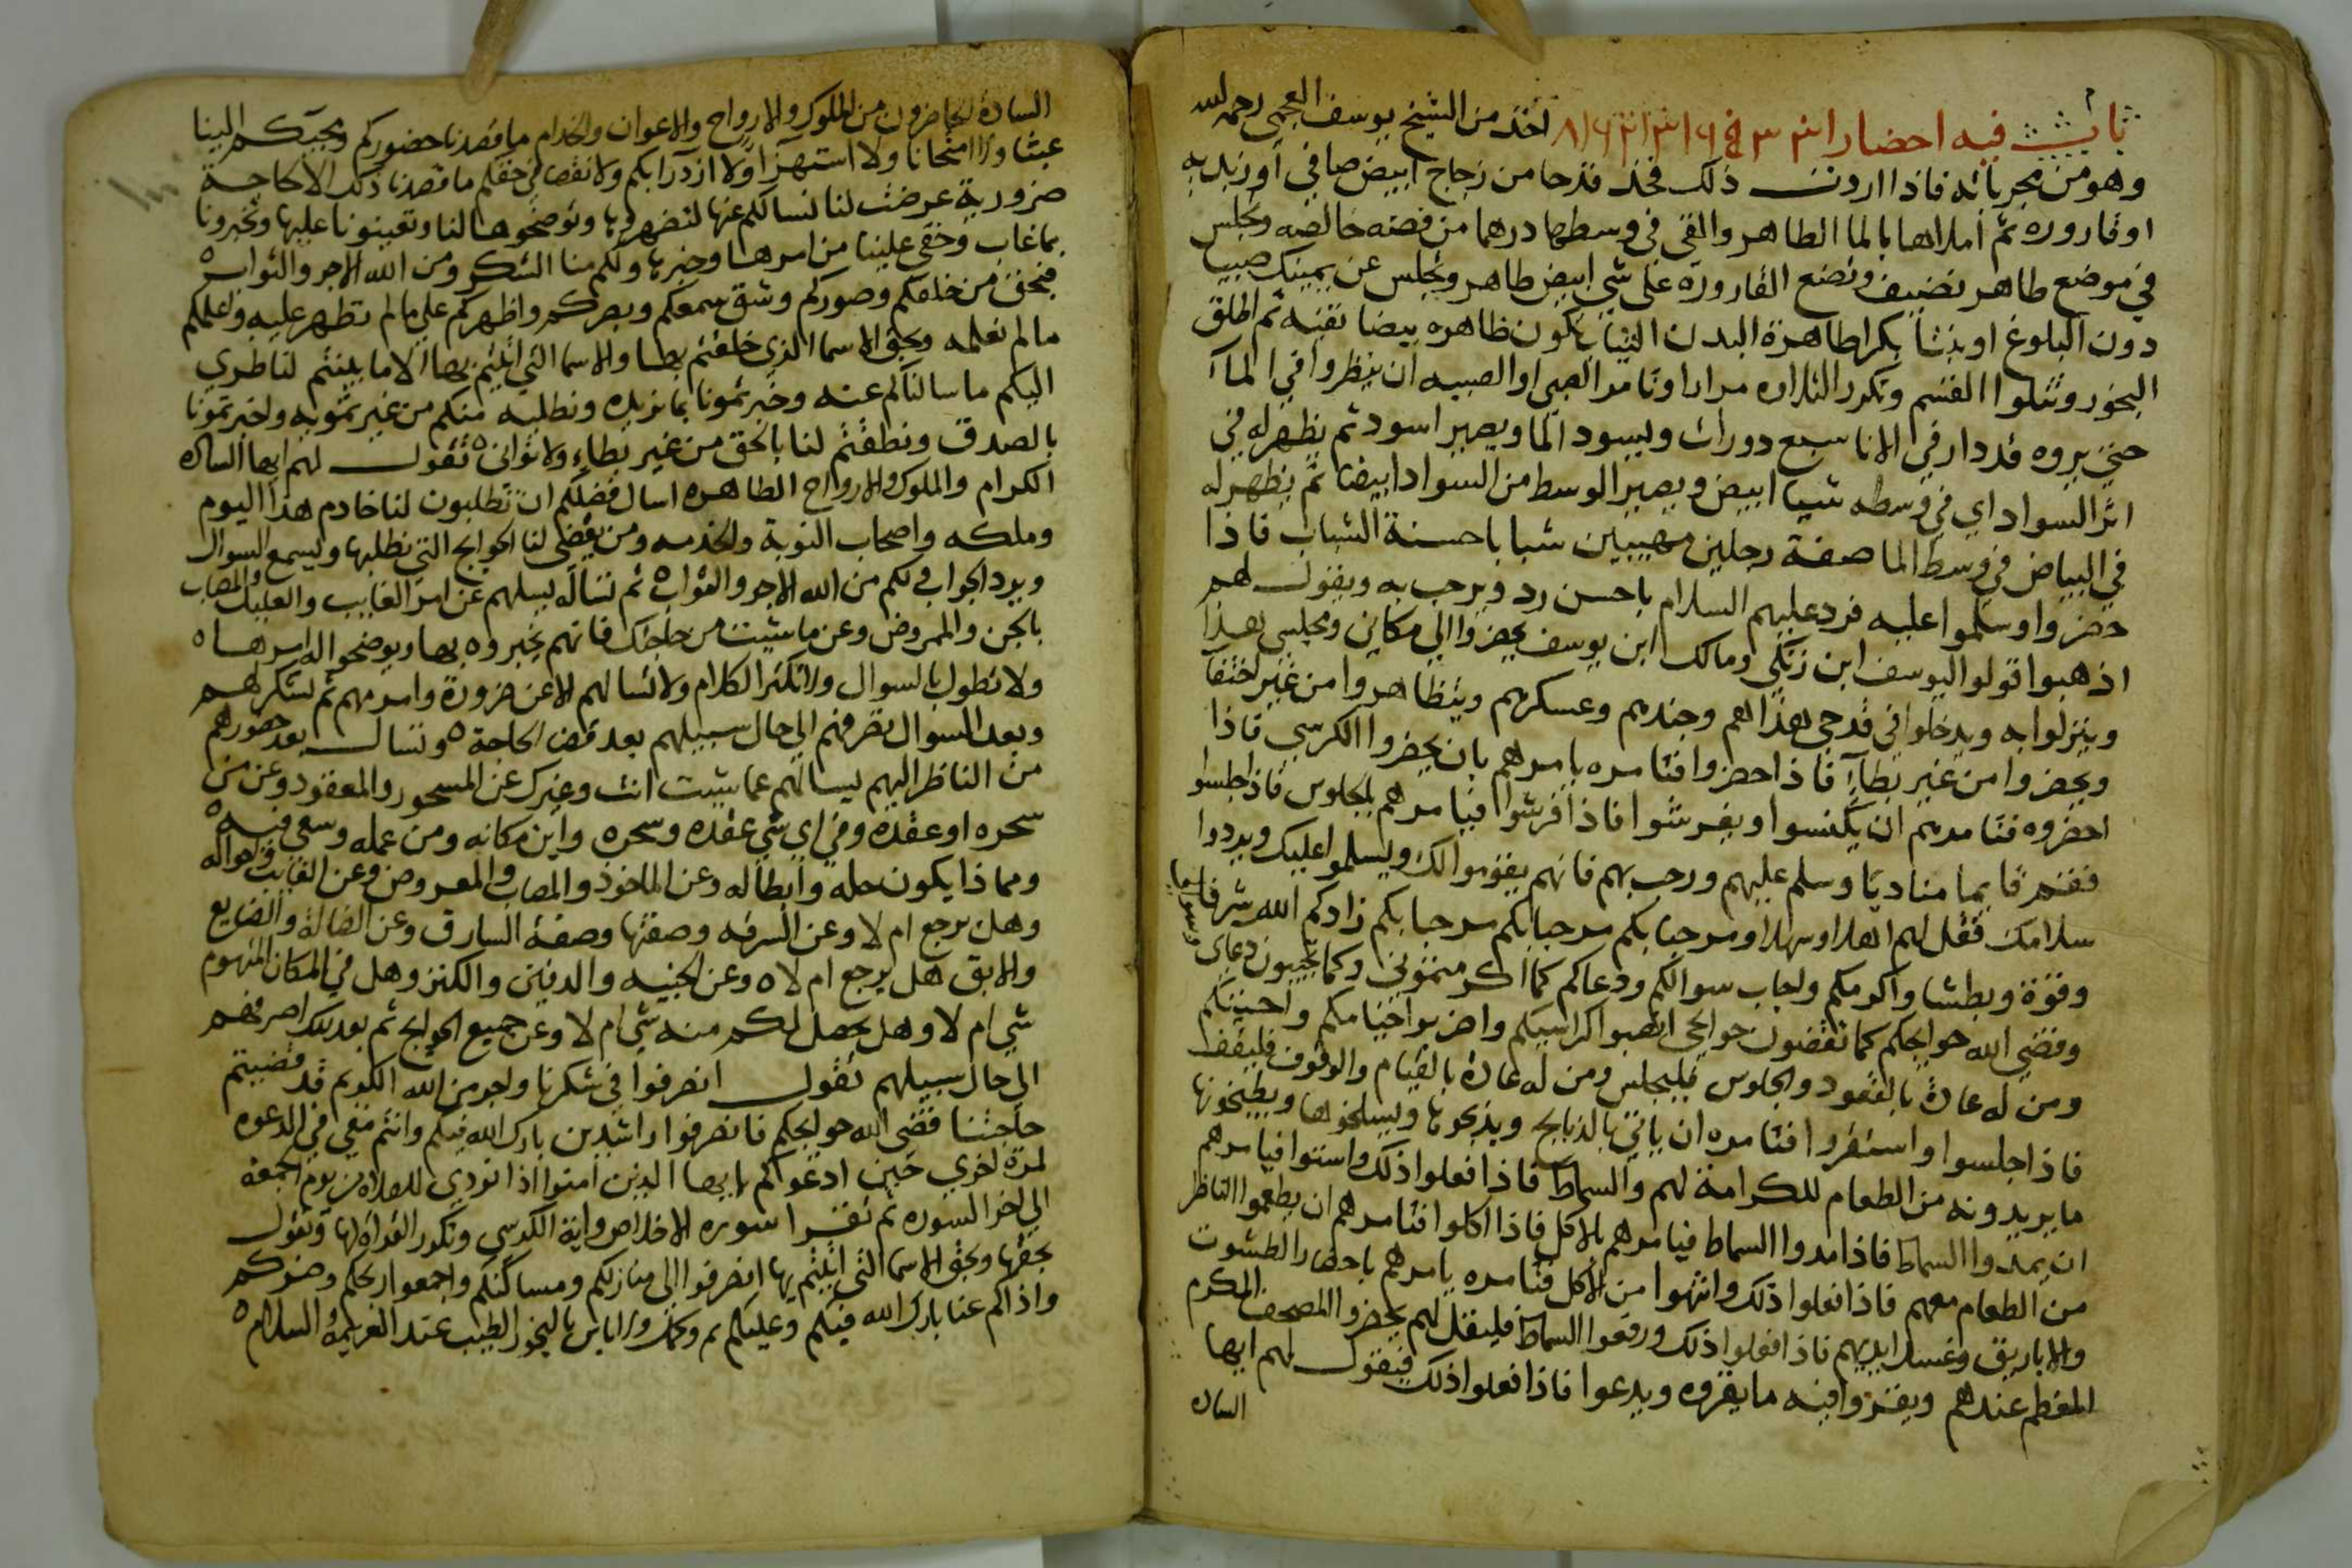 باب فيه احضار اخذ من الشيخ يوسف العجمي رحمه الله
وهو من مجرباته فاذا اردت ذلك فخذ قدحا من زجاج ابيض صافي او زبديه
او قاروره ثم املاها بالما الطاهر والقي في وسطها درهما من فضه خالصه وتجلس
في موضع طاهر نضيف وتضع القاروره على شي ابيض طاهر وتجلس عن يمينك صبيا
دون البلوغ او بنتا بكرا طاهرة البدن الثياب تكون ظاهره بيضا نقيه ثم اطلق
البخور وتتلوا القسم وتكرر التلاوه مرارا وتامر الصبي او الصبيه ان ينظروا في المآ
حتي يروه قد دار في الانا سبع دورات ويسود الما ويصير اسود ثم يظهر له في
اثر السواد اي في وسطه شيا ابيض ويصير الوسط من السواد ابيضا ثم يظهر له
في البياض في وسط الما صفة رجلين مهيبين شبابا حسنة الشباب فاذا
حضروا وسلموا عليه فرد عليهم السلام باحسن رد ويرحب به ويقول لهم
اذهبوا قولوا ليوسف ابن زنكي ومالك ابن يوسف يحضروا الي مكاني ومجلسي هذا
وينزلوا به ويدخلوا في قدحي هذا هم وجندهم وعسكرهم ويتظاهروا من غير اختفا
ويحضروا من غير بطاءٍ فاذا حضروا فتامره يامرهم بان يحضروا الكرسي فاذا
احضروه فتامرهم ان يكنسوا ويفرشوا فاذا فرشوا فيامرهم بالجلوس فاذا جلسوا
فقم قايما مناديا وسلم عليهم ورحب بهم فانهم يقوموا لك ويسلموا عليك ويردوا
سلامك فقل لهم اهلا وسهلا ومرحبا بكم مرحبا بكم مرحبا بكم زادكم الله شرفا
وقوة وبطشا واكرمكم واجاب سوالكم ودعاكم كما اكرمتموني وكما تجيبون دعاي وسوالي
وقضي الله حوايجكم كما تقضون حوايجي انصبوا كراسيكم واضربوا خيامكم واخبيتكم
ومن له عادة بالقعود والجلوس فليجلس ومن له عادة بالقيام والوقوف فليقف
فاذا جلسوا واستقروا فتامره ان ياتي بالذبايح ويذبحوها ويسلخوها ويطبخونها
ما يريدونه من الطعام للكرامة لهم والسماط فاذا فعلوا ذلك واستووا فيامرهم
ان يمدوا السماط فاذا مدوا السماط فيامرهم بالاكل فاذا اكلوا فتامرهم ان يطعموا الناظر
من الطعام معهم فاذا فعلوا ذلك وانتهوا من الاكل فتامره يامرهم باحضار الطشوت
والاباريق وغسل ايديهم فاذا فعلوا ذلك ورفعوا السماط فليقل لهم يحضروا المصحف المكرم
المعظم عندهم ويقروا فيه ما يقروه ويدعوا فاذا فعلوا ذلك فيقول لهم ايها
الساده
الساده الحاضرون من الملوك والارواح والاعوان والخدام ما قصدنا حضوركم ومجيكم الينا
عبثا ولا امتحانا ولا استهزآ ولا ازدرا بكم ولا نقصا في حقكم ما قصدنا ذلك الا لحاجة
ضرورية عرضت لنا نسالكم عنها لتضهروها وتوضحوها لنا وتعينونا عليها وتخبرونا
بما غاب وخفي علينا من امرها وخبرها ولكم منا الشكر ومن الله الاجر والثواب
فبحق من خلقكم وصوركم وشق سمعكم وبصركم واظهركم علي ما لم نظهر عليه واعلمكم
ما لم نعلمه وبحق الاسما الذي خلقتم بها والاسما التي اتيتم بها الا ما بينتم لناظري
اليكم ما سالناكم عنه وخبرتمونا بما نريده ونطلبه منكم من غير تمويه واخبرتمونا
بالصدق ونطقتم لنا بالحق من غير بطاءٍ ولا تواني تقول لهم ايها الساده
الكرام والملوك والارواح الطاهره اسال فضلكم ان تطلبون لنا خادم هذا اليوم
وملكه واصحاب النوبة والخدمه ومن يقضي لنا الحوايج التي نطلبها ويسمع السوال
ويرد الجواب ولكم من الله الاجر والثواب ثم نساله يسلهم عن امر الغايب والعليل والمصاب
بالجن والممروض وعن ما شيت من حاجتك فانهم يخبروه بها ويوضحوا له امرها
ولا تطول بالسوال ولا تكثر الكلام ولا تسالهم الا عن ضرورة وامر مهم ثم تشكرهم
وبعد السوال تصرفهم الي حال سبيلهم بعد قضا الحاجة وتسال بعد حضورهم
من الناظر اليهم يسالهم عما شيت انت وغيرك عن المسحور والمعقود وعن من
سحره او عقده وفي اي شي عقده وسحره واين مكانه ومن عمله وسعي فيه
ومما ذا يكون حله وابطاله وعن الماخوذ والمصاب والمعروض وعن الغايب واحواله
وهل يرجع ام لا وعن السرقه وصفتها وصفة السارق وعن الضالة والضايع
والابق هل يرجع ام لا وعن الخبيه والدفين والكنز وهل في المكان المتهوم
شي ام لا وهل يحصل لكم منه شي ام لا وعن جميع الحوايج ثم بعد ذلك اصرفهم
الي حال سبيلهم تقول انصرفوا في شكرنا واجر من الله الكريم قد قضيتم
حاجتنا فقضي الله حوايجكم فانصرفوا راشدين بارك الله فيكم وانتم معي في الدعوه
لمرة اخري حين ادعوكم يا ايها الذين امنوا اذا نودي للصلاه من يوم الجمعه
الي اخر السوره ثم تقرا سوره الاخلاص واية الكرسي وتكرر القراه لها وتقول
بحقها وبحق الاسما التي اتيتم بها انصرفوا الي منازلكم ومساكنكم واجمعوا ريحكم وضركم
واذاكم عنا بارك الله فيكم وعليكم بالبخور الطيب عند العزيمة والسلام